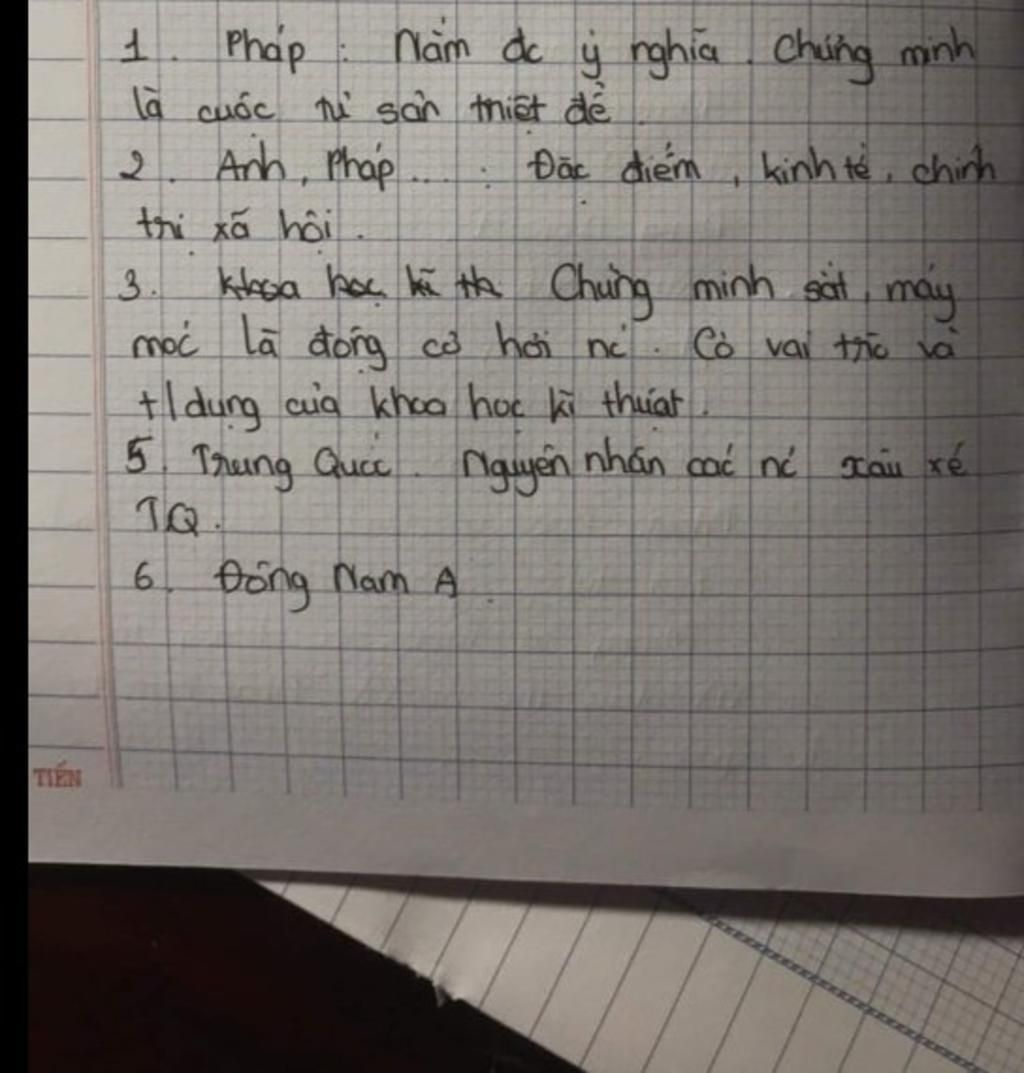 1. Pháp: Nắm đc ý nghĩa. Chứng minh
là cuộc tư sản triệt để.
2. Anh, Pháp....: Đặc điểm, kinh tế, chính
trị xã hội.
3. Khoa học kĩ th Chứng minh sắt, máy
móc là động cơ hơi nc. Có vai trò và
t/dụng của khoa học kĩ thuật.
5. Trung Quốc. Nguyên nhân các nc xâu xé
TQ.
6. Đông Nam A.
TIẾN